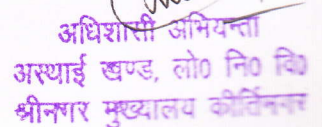 अधिशासी अभियन्ता
अस्थाई खण्ड, लो० नि० वि०
श्रीनगर मुख्यालय कीर्तिनगर